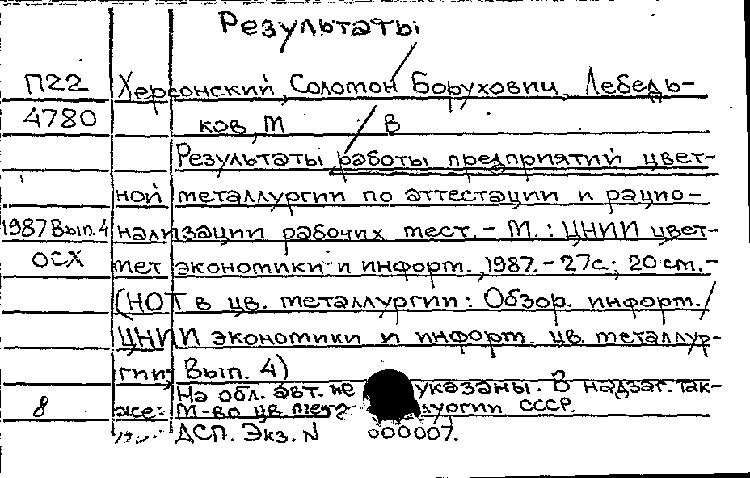 Результаты
П22 Херсонский, Соломон Борухович, Лебедь-
4780 ков, М В
Результаты работы предприятий цвет-
ной металлургии по аттестации и рацио-
1987 Вып. 4 нализации рабочих мест. - М.: ЦНИИ цвет-
ОСХ мет экономики и информ., 1987. - 27с.; 20 см. -
(НОТ в цв. металлургии: Обзор. информ. /
ЦНИИ экономики и информ. цв. металлур-
гии; Вып. 4)
На обл. авт. не указаны. В надзаг. так-
8 же: М-во цв. металлургии СССР.
ДСП. Экз. N 000007.